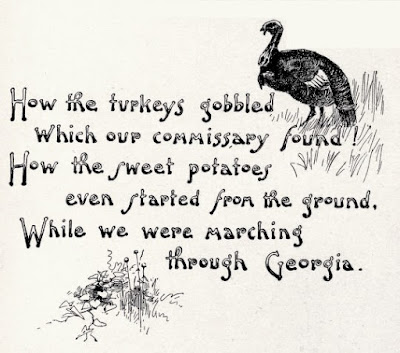 How the turkeys gobbled
Which our commissary found!
How the sweet potatoes
even started from the ground,
While we were marching
through Georgia.